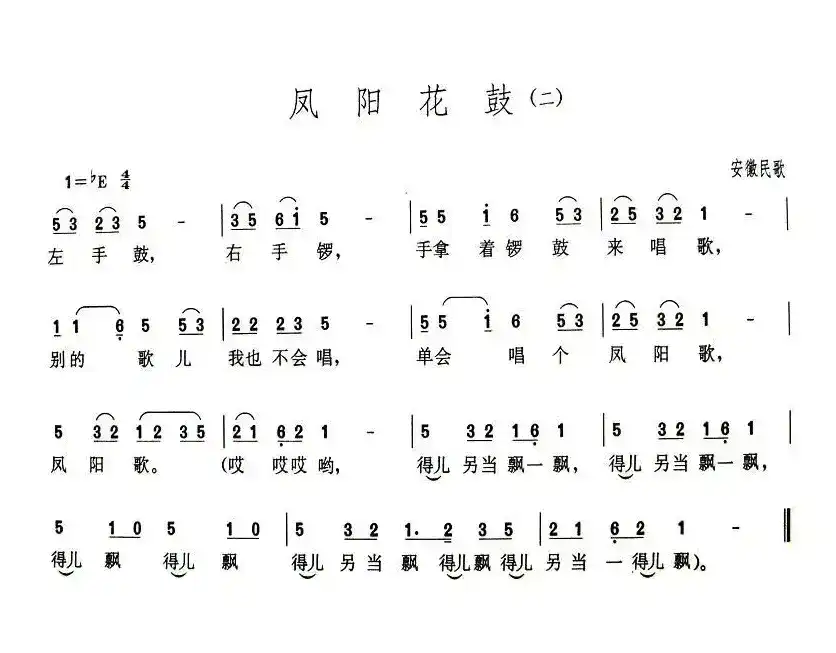 凤阳花鼓(二)
1=♭E 4/4
安徽民歌
5 3 2 3 5 - | 3 5 6 i 5 - | 5 5 i 6 5 3 | 2 5 3 2 1 - |
左手鼓, 右手锣, 手拿着锣鼓来唱歌,
1 1 6 5 5 3 | 2 2 2 3 5 - | 5 5 i 6 5 3 | 2 5 3 2 1 - |
别的歌儿我也不会唱, 单会唱个凤阳歌,
5 3 2 1 2 3 5 | 2 1 6 2 1 - | 5 3 2 1 6 1 | 5 3 2 1 6 1 |
凤阳歌。(哎哎哎哟, 得儿另当飘一飘, 得儿另当飘一飘,
5 1 0 5 1 0 | 5 3 2 1· 2 3 5 | 2 1 6 2 1 - ‖
得儿飘得儿飘 得儿另当飘得儿飘得儿另当一得儿飘)。